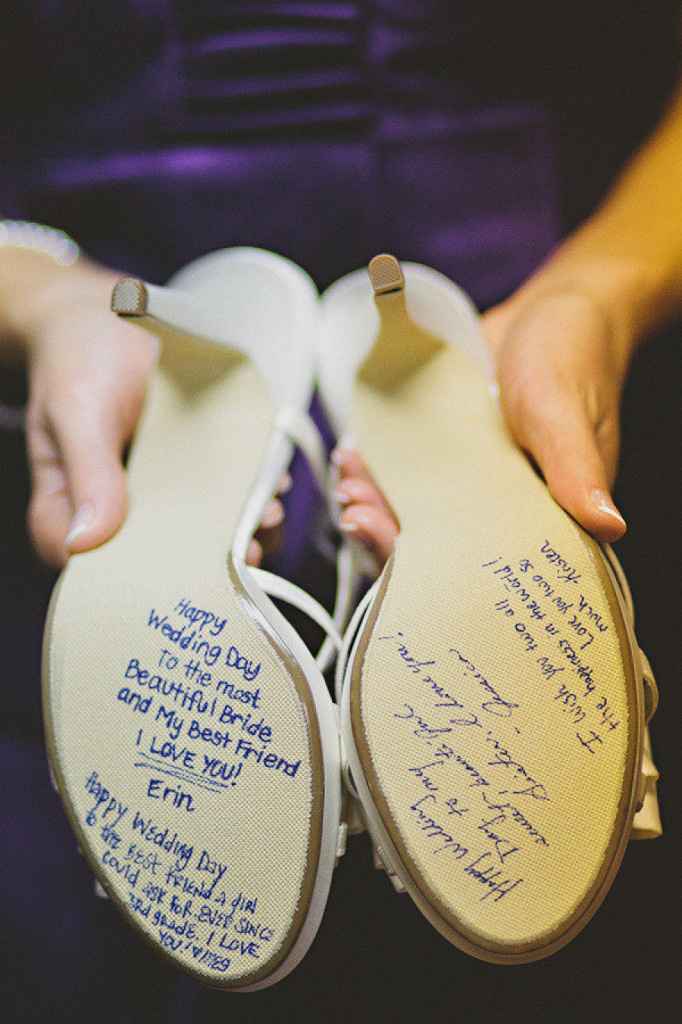 Happy
Wedding Day
To the most
Beautiful Bride
and My Best Friend
I LOVE YOU!
Erin
Happy Wedding Day
to the best friend a girl
could ask for. Ever since
3rd grade. I LOVE
YOU!
I wish you two all
the happiness in the world!
Love you two so
much, Kristen
Happy Wedding
Day to my
beautiful
Sister. I love you!
- Jessica